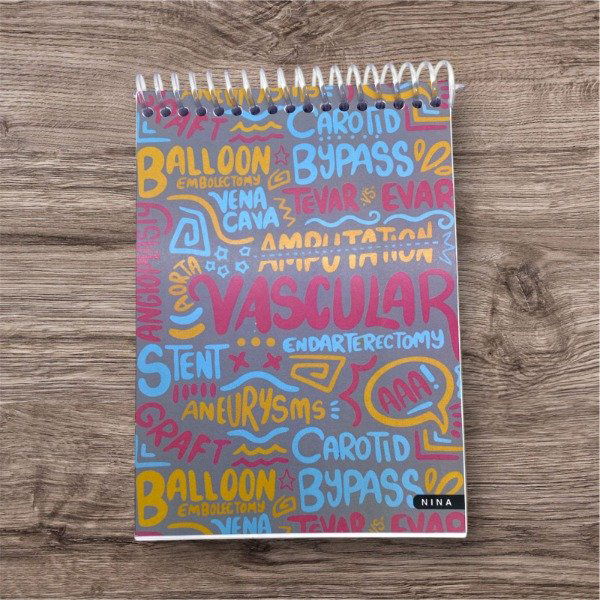 ANEURYSMS
GRAFT
CAROTID
BALLOON
EMBOLECTOMY
BYPASS
VENA
CAVA
TEVAR VS. EVAR
ANGIOPLASTY
AORTA
AMPUTATION
VASCULAR
ENDARTERECTOMY
STENT
ANEURYSMS
AAA!
GRAFT
CAROTID
BALLOON
EMBOLECTOMY
BYPASS
NINA
VENA
TEVAR VS. EVAR